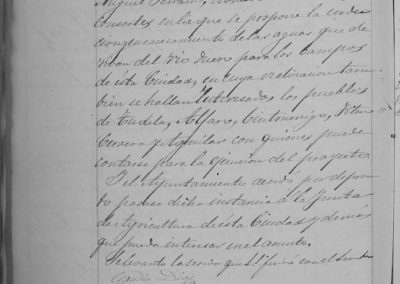 Miguel
consortes en la que se propone la
de las aguas que de
del rio Duero para los campos
de esta Ciudad, en cuya realizacion tam-
bien se hallan interesados los pueblos
de Tudela, Alfaro, Cintruenigo,
Cervera y Aguilar con quienes puede
contarse para la ejecucion del proyecto.
Y el Ayuntamiento acordó por de pron-
to pasar dicha instancia á la Junta
de Agricultura de esta Ciudad y demás
que pueda interesar en el asunto.
Se levantó la sesion que